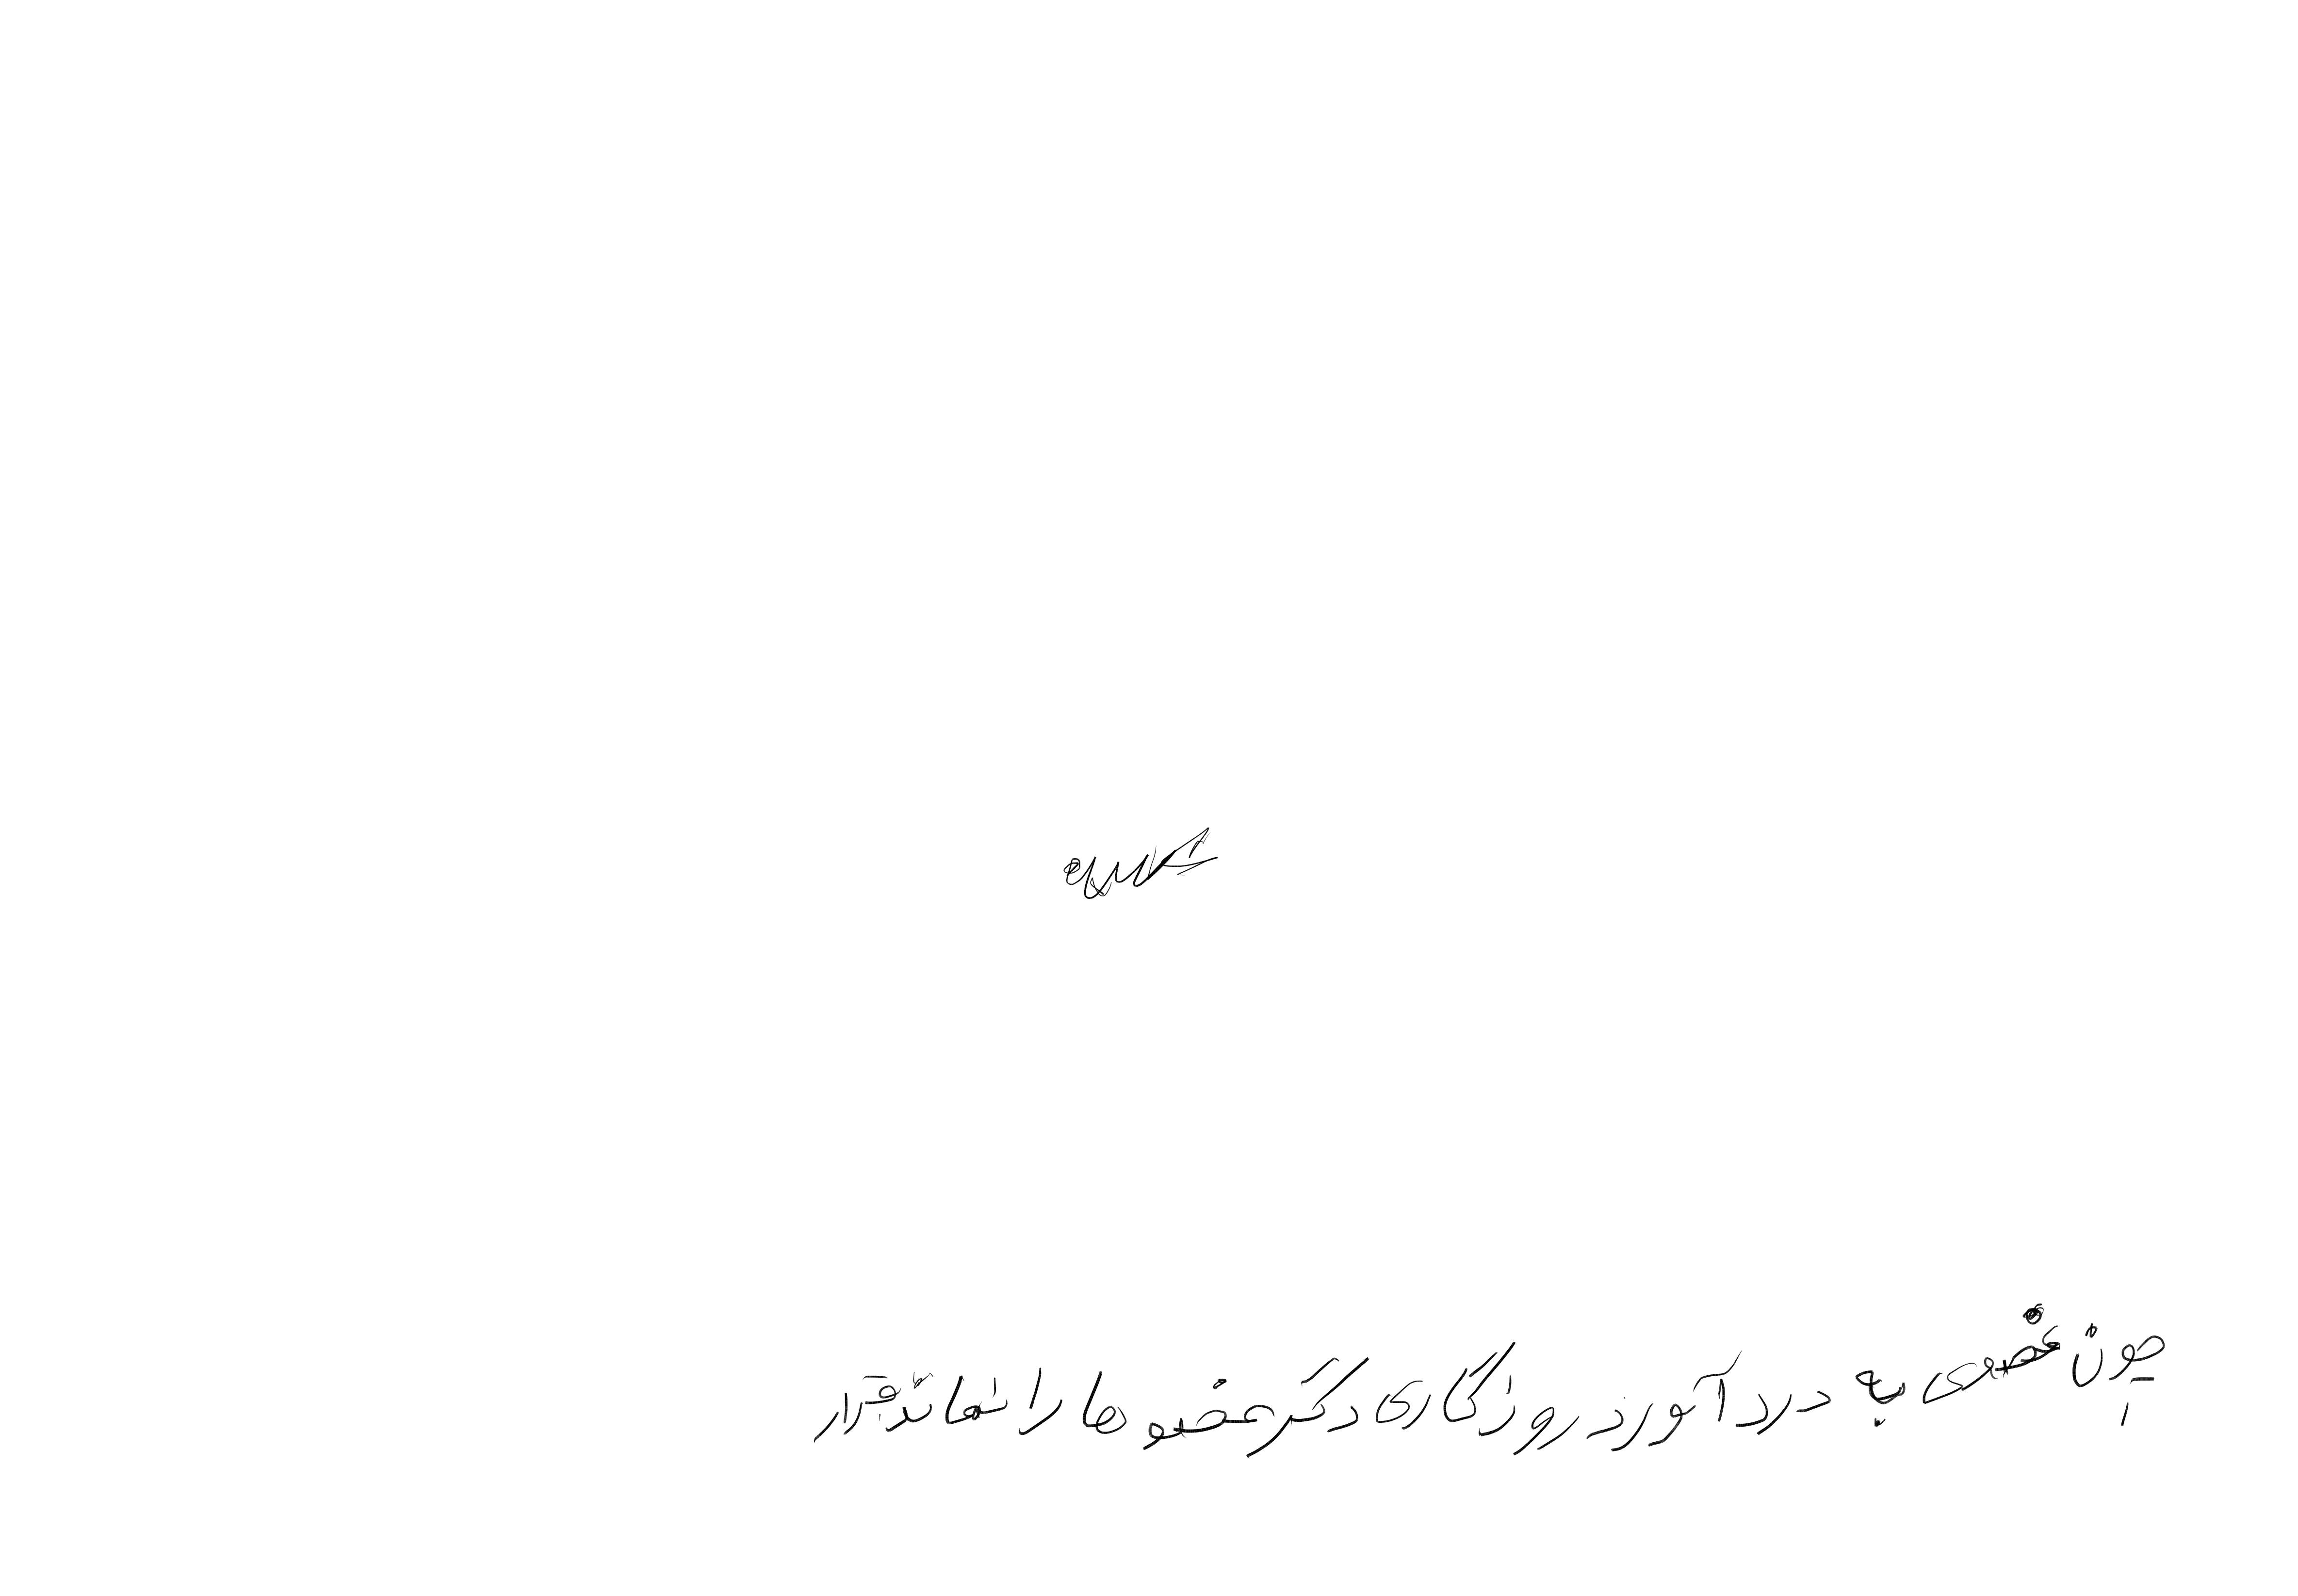 چون عضوی به درد آورد روزگار
دگر عضوها را نماند قرار